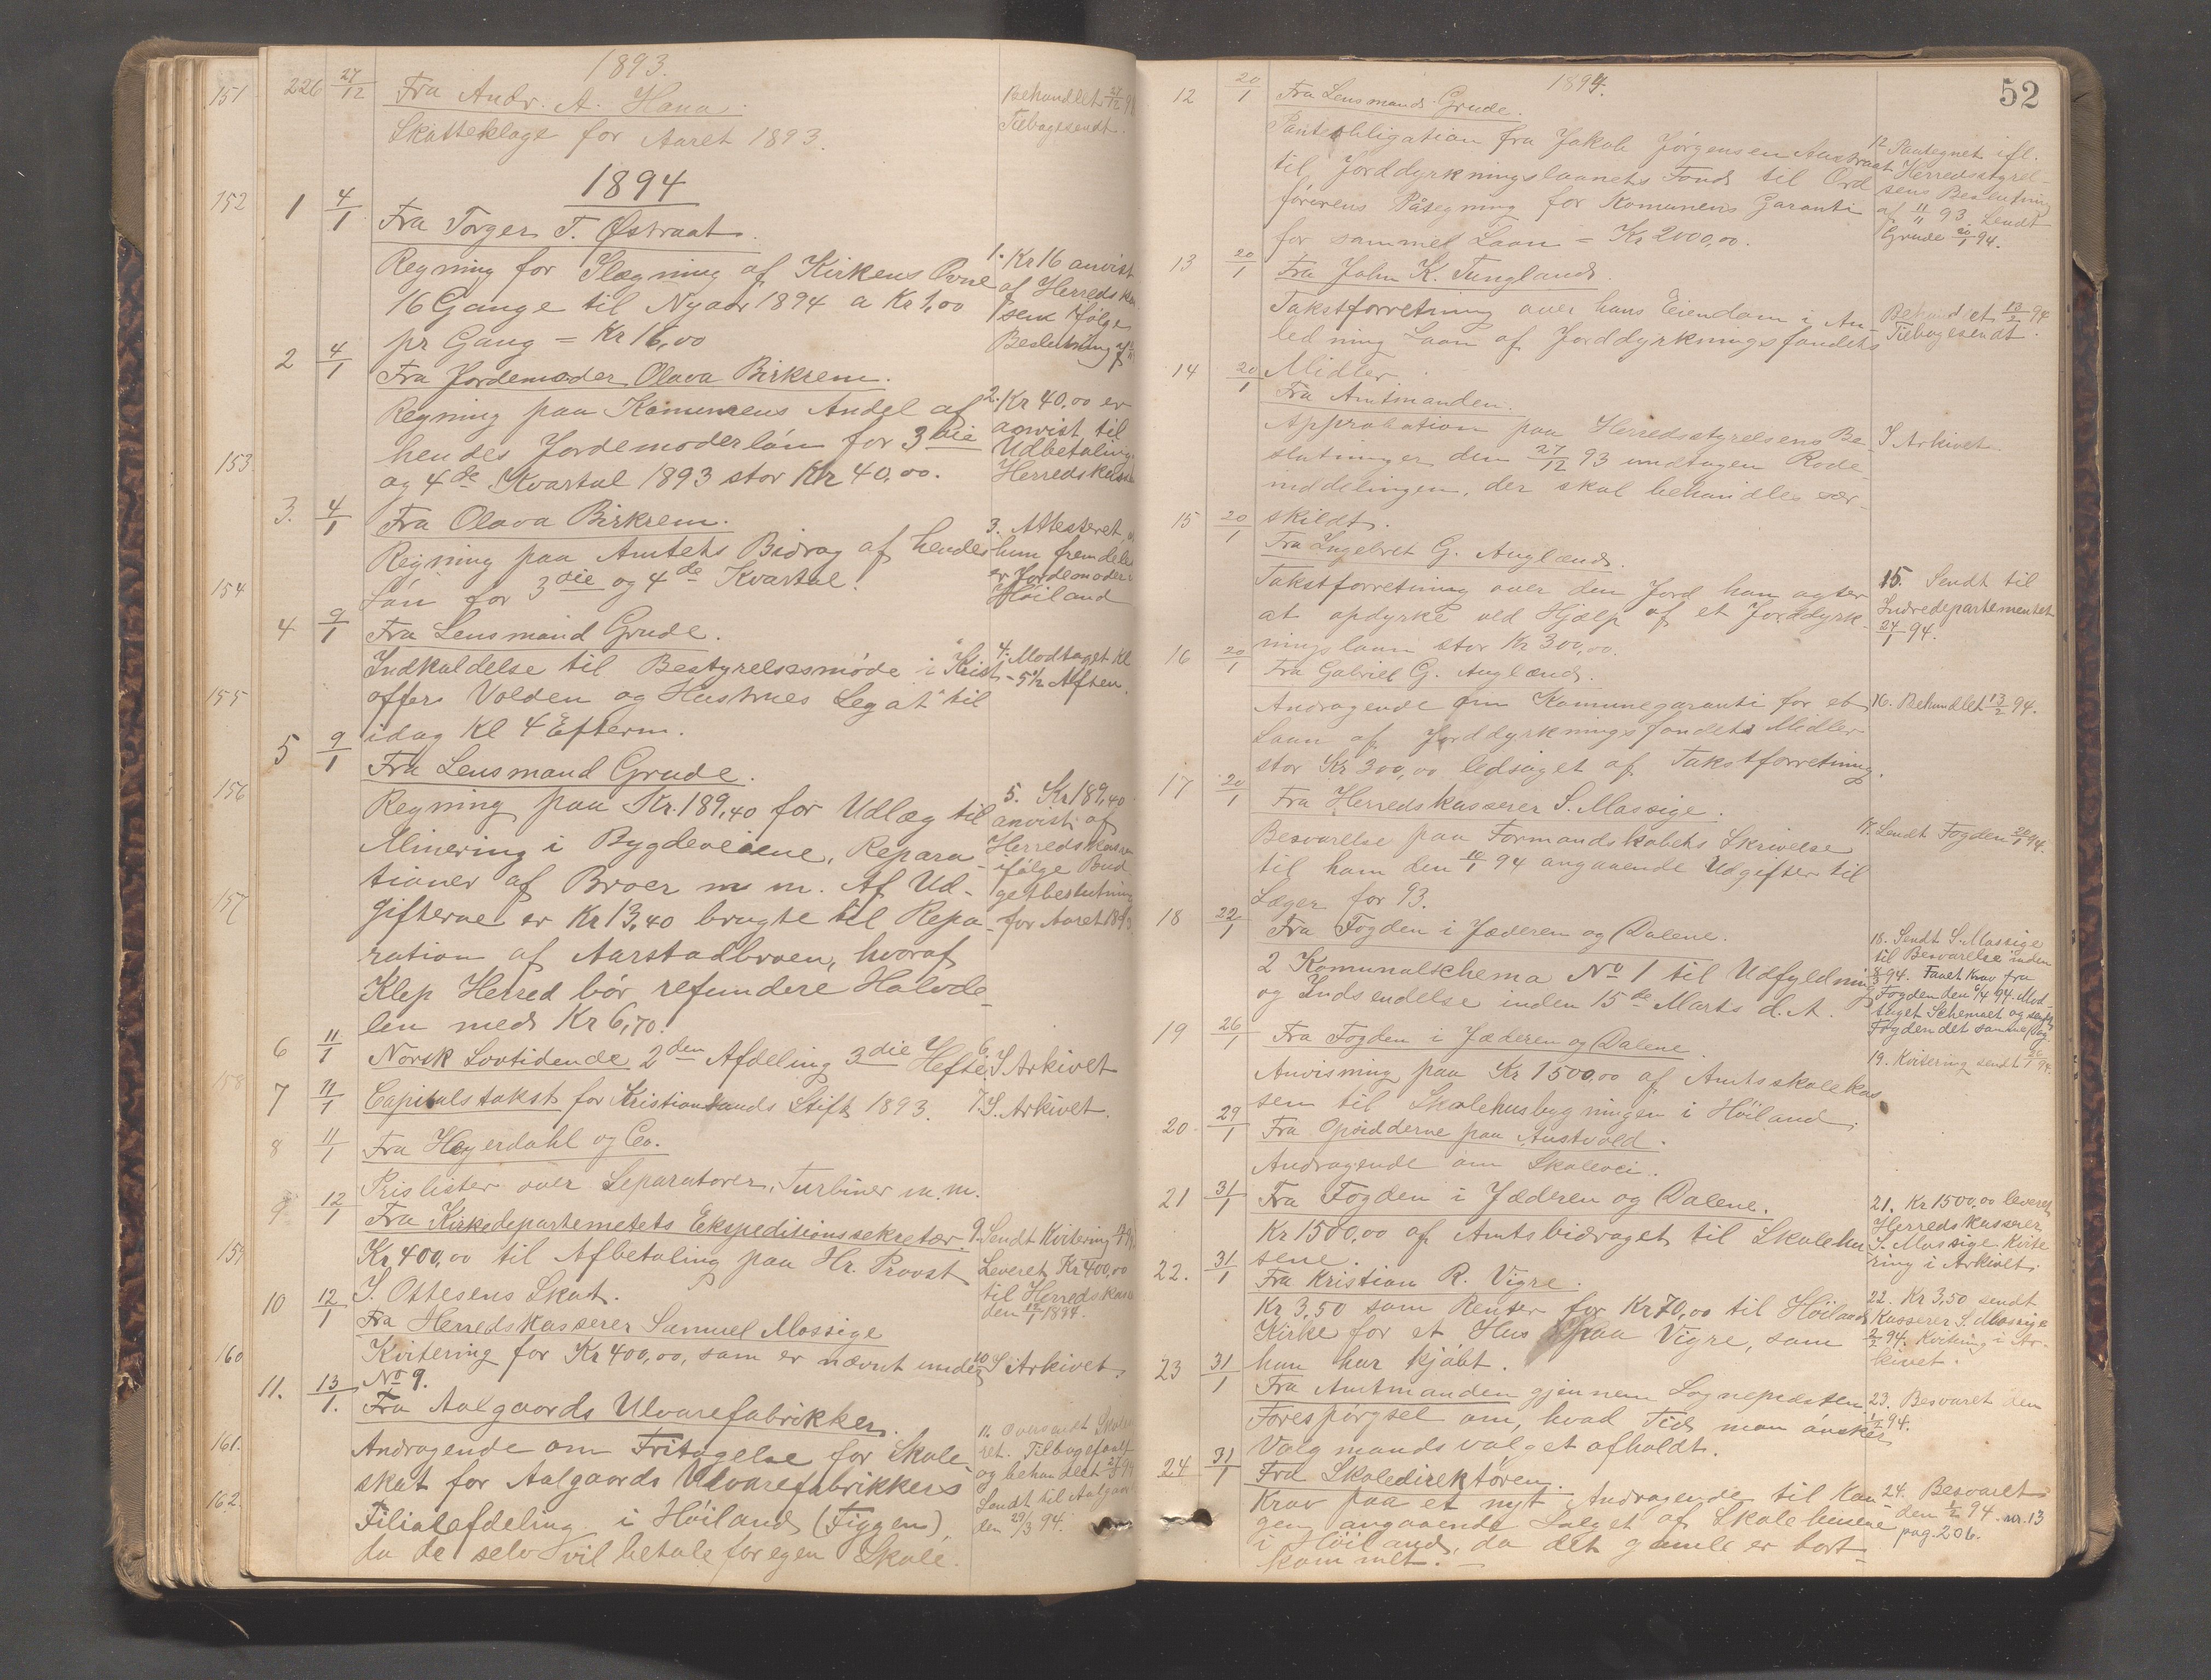 1893.
226 27/12 Fra Andr. A. Hana.
Skatteklage for Aaret 1893.
Behandlet 27/12 93
Tilbagesendt.
1894
1 4/1 Fra Torger T. Østraat.
Regning for Ilægning af Kirkens Ovne
16 Gange til Nyaar 1894 a Kr 1,00
pr Gang = Kr 16,00
1. Kr 16 anvist
af Herredskas
sen ifølge
Beslutning af
2 4/1 Fra Jordemoder Olava Birkrem.
Regning paa Komunens Andel af
hendes Jordemoderlön for 3die
og 4de Kvartal 1893 stor Kr 40,00.
2. Kr 40,00 er
anvist til
Udbetaling
Herredskassen
3. 4/1 Fra Olava Birkrem.
Regning paa Amtets Bidrag af hendes
Lön for 3die og 4de Kvartal.
3. Attesteret, at
hun fremdeles
er Jordemoder i
Höiland
4 9/1 Fra Lensmand Grude.
Indkaldelse til Bestyrelsesmöde i "Krist-
offer Volden og Hustrues Legat" til
idag Kl 4 Efterm.
4. Modtaget Kl
5½ Aften.
5 9/1 Fra Lensmand Grude.
Regning paa Kr. 189,40 for Udlæg til
Minering i Bygdeveiene, Repara-
tioner af Broer m m. Af Ud-
gifterne er Kr 13,40 brugte til Repa-
ration af Aarstadbroen, hvoraf
Klep Herred bör refundere Halvde-
len med Kr 6,70.
5. Kr 189,40
anvist af
Herredskassen
ifølge Bud
getbeslutning
for Aaret 1893
6 11/1 Norsk Lovtidende 2den Afdeling 3die Hefte.
6. I Arkivet
7 11/1 Capitulstakst for Kristiansands Stift 1893.
7. I. Arkivet.
8 11/1 Fra Heyerdahl og Co.
Prislister over Separatorer, Turbiner m. m.
9 12/1 Fra Kirkedepartemetets Ekspeditionssekretær.
Kr, 400,00 til Afbetaling paa Hr. Provst
I. Ottesens Skat.
9. Sendt Kvitering
Leveret Kr 400,00
til Herredskas
den 12/1 1894.
10 12/1 Fra Herredskasserer Samuel Mossige
Kvitering for Kr 400,00, som er nævnt under
No 9.
10 I Arkivet.
11. 13/1. Fra Aalgaards Uldvarefabrikker.
Andragende om Fritagelse for Skole-
skat for Aalgaards Uldvarefabrikkers
Filialafdeling i Höiland (Figgen),
da de selv vil betale for egen Skole.
11. Oversendt Skole
ret. Tilbagefaaet
og behandlet
Sendt til Aalgaard
den 29/3 94.
151
152
153
154
155
156
157
158
159
160
161.
162.
1894.
52
12 20/1 Fra Lensmand Grude.
Panteobligation fra Jakob Jörgensen Austraat
til Jorddyrkningslaanets Fond til Ord
förerens Påtegning for Komunens Garanti
for sammel Laan = Kr 2000,00.
12 Paategnet ifl.
Herredsstyrel-
sens Beslutning
af 11/11 93. Sendt
Grude 20/1 94.
13 20/1 Fra John K. Tunglands.
Takstforretning over hans Eiendom i An-
ledning Laan af Jorddyrkningsfondets
Midler.
Behandlet 13/2 94
Tilbagesendt.
14 20/1 Fra Amtmanden.
Approbation paa Herredsstyrelsens Be-
slutninger den 27/12 93 undtagen Rode-
inddelingen, der skal behandles sær-
skildt.
I Arkivet.
15 20/1 Fra Ingebret G. Auglænd.
Takstforretning over den Jord han agter
at opdyrke ved Hjælp af et Jorddyrk-
ningslaan stor Kr 300,00.
15. Sendt til
Indredepartementet
24/1 94.
16 20/1 Fra Gabriel G. Auglænd.
Andragende om Komunegaranti for et
Laan af Jorddyrkningsfondets Midler
stor Kr 300,00 ledsaget af Takstforretning.
16. Behandlet 13/2 94.
17 20/1 Fra Herredskasserer S. Mossige.
Besvarelse paa Formandskabets Skrivelse
til ham den 10/1 94 angaaende Udgifter til
Læger for 93.
17. Sendt Fogden 20/1 94.
18 22/1 Fra Fogden i Jæderen og Dalene.
2 Komunalschema No 1 til Udfyldning
og Indsendelse inden 15de Marts d. A.
18. Sendt S. Mossige
til Besvarelse inden
8/3 94. Faaet Krav fra
Fogden den 6/4 94. Mod-
taget Schemaet og sendt
Fogden det samme Dag.
19 26/1 Fra Fogden i Jæderen og Dalene.
Anvisning paa Kr 1500,00 af Amtsskolekas
sen til Skolehusbygningen i Höiland.
19. Kvitering sendt 26/1 94.
20. 29/1 Fra Opsidderne paa Austvold.
Andragende om Skolevei.
21 31/1 Fra Fogden i Jæderen og Dalene.
Kr 1500,00 af Amtsbidraget til Skolehu-
sene.
21. Kr 1500,00 leveret
Herredskasserer
S. Mossige Kvite
ring i Arkivet.
22. 31/1 Fra Kristian R. Vigre.
Kr 3,50 som Renter for Kr 70,00 til Höilands
Kirke for et Hus paa Vigre, som
han har kjöbt.
22. Kr 3,50 sendt
Kasserer S. Mossige
2/2 94. Kvitering i Ar-
kivet.
23 31/1 Fra Amtmanden gjennem Sognepresten
Forespörgsel om, hvad Tid man önsker
Valgmandsvalget afholdt.
23. Besvaret den
1/2 94.
24 31/1 Fra Skoledirektören.
Krav paa et nyt Andragende til Kon-
gen angaaende Salget af Skolehusene
i Höiland, da det gamle er bort-
kommet.
24. Besvaret
den 1/2 94. nr. 13
pag. 206.